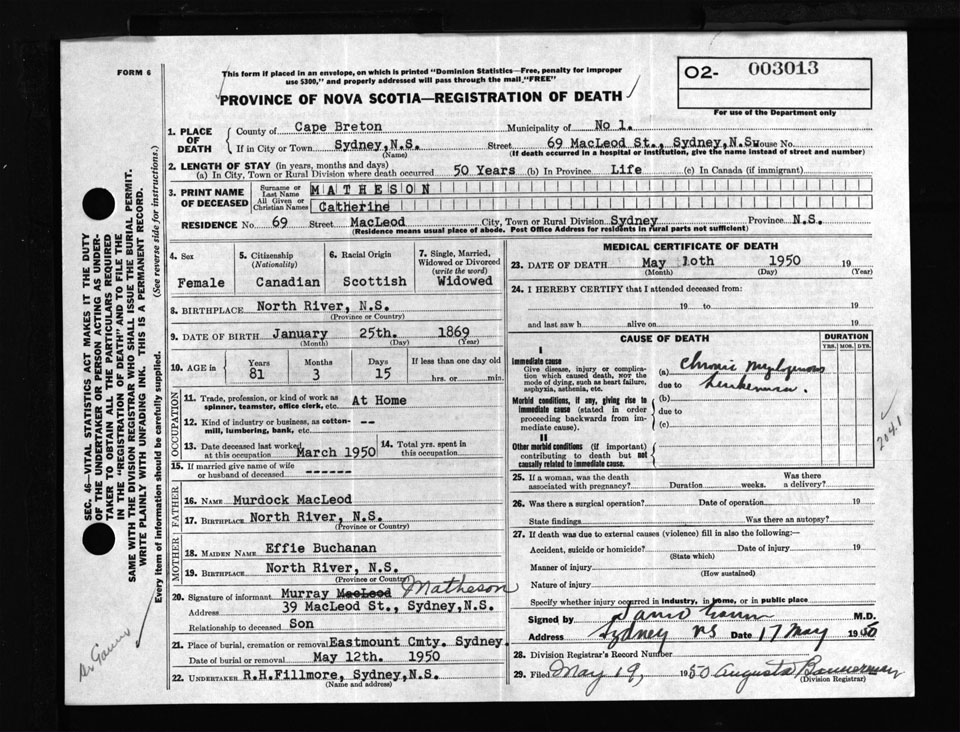 FORM 6
This form if placed in an envelope, on which is printed "Dominion Statistics—Free, penalty for improper
use $300," and properly addressed will pass through the mail "FREE"
PROVINCE OF NOVA SCOTIA—REGISTRATION OF DEATH
02- 003013
For use of the Department only
SEC. 46—VITAL STATISTICS ACT MAKES IT THE DUTY
OF THE UNDERTAKER OR PERSON ACTING AS UNDER-
TAKER TO OBTAIN ALL THE PARTICULARS REQUIRED
IN THE "REGISTRATION OF DEATH" AND TO FILE THE
SAME WITH THE DIVISION REGISTRAR WHO SHALL ISSUE THE BURIAL PERMIT.
WRITE PLAINLY WITH UNFADING INK. THIS IS A PERMANENT RECORD.
Every item of information should be carefully supplied. (See reverse side for instructions.)
1. PLACE OF DEATH
County of Cape Breton Municipality of No 1.
If in City or Town Sydney,N.S. Street 69 MacLeod St., Sydney,N.S. House No.
(Name) (If death occurred in a hospital or institution, give the name instead of street and number)
2. LENGTH OF STAY (in years, months and days)
(a) In City, Town or Rural Division where death occurred 50 Years (b) In Province Life (c) In Canada (if immigrant)
3. PRINT NAME OF DECEASED
Surname or Last Name MATHESON
All Given or Christian Names Catherine
RESIDENCE No. 69 Street MacLeod City, Town or Rural Division Sydney Province N.S.
(Residence means usual place of abode. Post Office Address for residents in rural parts not sufficient)
4. Sex Female
5. Citizenship (Nationality) Canadian
6. Racial Origin Scottish
7. Single, Married, Widowed or Divorced (write the word) Widowed
8. BIRTHPLACE North River, N.S.
(Province or Country)
9. DATE OF BIRTH January 25th. 1869
(Month) (Day) (Year)
10. AGE in Years Months Days If less than one day old
81 3 15 hrs. or min.
OCCUPATION
11. Trade, profession, or kind of work as
spinner, teamster, office clerk, etc. At Home
12. Kind of industry or business, as cotton-
mill, lumbering, bank, etc. --
13. Date deceased last worked at this occupation March 1950
14. Total yrs. spent in this occupation
15. If married give name of wife
or husband of deceased ------
FATHER
16. NAME Murdock MacLeod
17. BIRTHPLACE North River, N.S.
(Province or Country)
MOTHER
18. MAIDEN NAME Effie Buchanan
19. BIRTHPLACE North River, N.S.
(Province or Country)
20. Signature of informant Murray MacLeod Matheson
Address 39 MacLeod St., Sydney,N.S.
Relationship to deceased Son
21. Place of burial, cremation or removal Eastmount Cmty. Sydney.
Date of burial or removal May 12th. 1950
22. UNDERTAKER R.H.Fillmore, Sydney,N.S.
(Name and address)
MEDICAL CERTIFICATE OF DEATH
23. DATE OF DEATH May 10th 1950 19
(Month) (Day) (Year)
24. I HEREBY CERTIFY that I attended deceased from:
19 to 19
and last saw h alive on 19
CAUSE OF DEATH DURATION
YRS. MOS. DYS.
I
Immediate cause
Give disease, injury or complica-
tion which caused death, NOT the
mode of dying, such as heart failure,
asphyxia, asthenia, etc.
(a) Chronic myelogenous
due to leukemia.
Morbid conditions, if any, giving rise to
immediate cause (stated in order
proceeding backwards from im-
mediate cause).
(b)
due to
(c)
II
Other morbid conditions (if important)
contributing to death but not
causally related to immediate cause.
204.1
25. If a woman, was the death
associated with pregnancy? Duration weeks. Was there a delivery?
26. Was there a surgical operation? Date of operation 19
State findings Was there an autopsy?
27. If death was due to external causes (violence) fill in also the following:—
Accident, suicide or homicide? Date of injury 19
(State which)
Manner of injury
(How sustained)
Nature of injury
Specify whether injury occurred in industry, in home, or in public place
Signed by M.D.
Address Sydney NS Date 17 May 1950
28. Division Registrar's Record Number
29. Filed May 19, 1950 Augusta Bannerman
(Division Registrar)